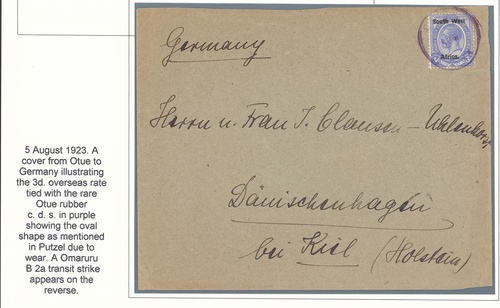 South West
Africa.
Germany
Herrn u. Frau J. Clausen – Uhlenhorst
Dänischenhagen
bei Kiel (Holstein)
5 August 1923. A
cover from Otue to
Germany illustrating
the 3d. overseas rate
tied with the rare
Otue rubber
c. d. s. in purple
showing the oval
shape as mentioned
in Putzel due to
wear. A Omaruru
B 2a transit strike
appears on the
reverse.